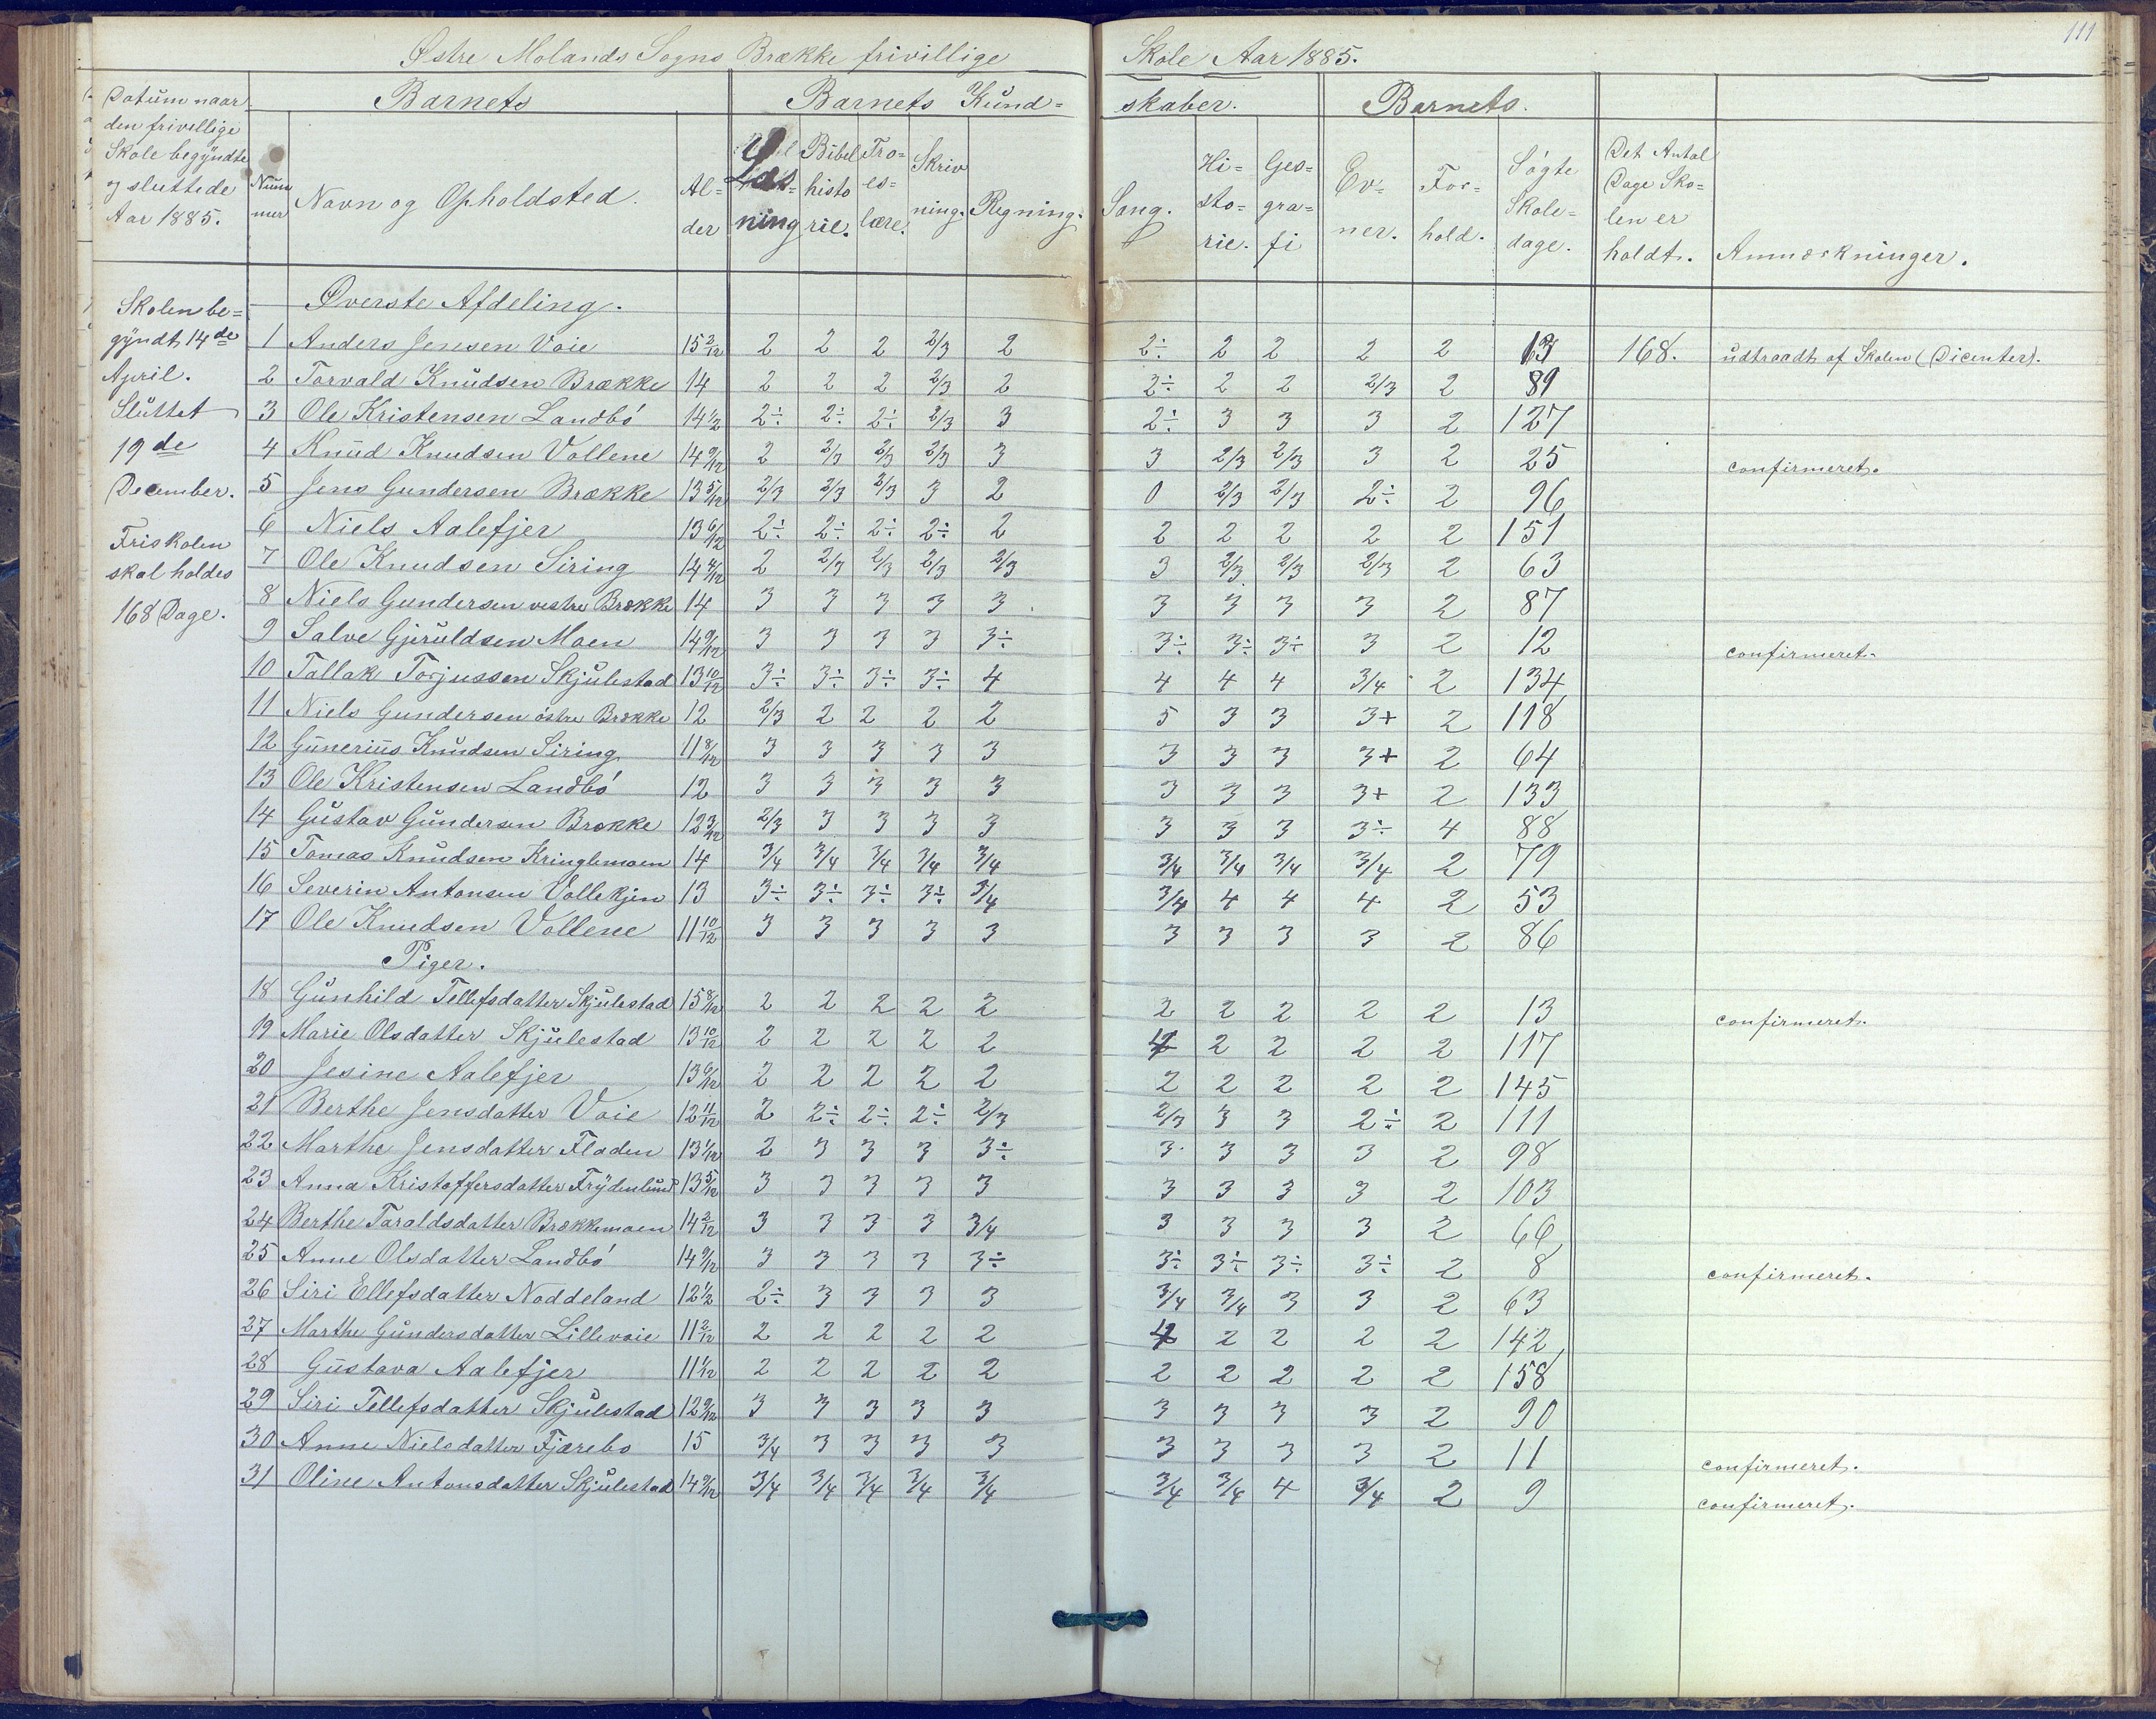 111
Østre Molands Sogns Brække frivillige Skole Aar 1885.
Datum naar den frivillige Skole begyndte og sluttede Aar 1885.
Barnets
Barnets Kundskaber.
Barnets.
Nummer
Navn og Opholdsted.
Alder
Læsning
Bibelhistorie.
Troeslære.
Skrivning.
Regning.
Sang.
Historie.
Geografi
Evner.
Forhold.
Søgte Skoledage.
Det Antal Dage Skolen er holdt.
Anmærkninger.
Skolen begyndt 14de April.
Sluttet 19de December.
Friskolen skal holdes 168 Dage.
Øverste Afdeling.
1 Anders Jensen Voie 15 2/12 2 2 2 2/3 2 2÷ 2 2 2 2 13 168. udtraadt af Skolen (Dicenter).
2 Torvald Knudsen Brække 14 2 2 2 2/3 2 2÷ 2 2 2/3 2 89
3 Ole Kristensen Landbö 14 1/2 2÷ 2÷ 2÷ 2/3 3 2÷ 3 3 3 2 127
4 Knud Knudsen Vollene 14 9/12 2 2/3 2/3 2/3 3 3 2/3 2/3 3 2 25 confirmeret.
5 Jens Gundersen Brække 13 5/12 2/3 2/3 2/3 3 2 0 2/3 2/3 2÷ 2 96
6 Niels Aalefjer 13 6/12 2÷ 2÷ 2÷ 2÷ 2 2 2 2 2 2 151
7 Ole Knudsen Siring 14 4/12 2 2/3 2/3 2/3 2/3 3 2/3 2/3 2/3 2 63
8 Niels Gundersen vestre Brække 14 3 3 3 3 3 3 3 3 3 2 87
9 Salve Gjeruldsen Moen 14 9/12 3 3 3 3 3÷ 3÷ 3÷ 3÷ 3 2 12 confirmeret.
10 Tallak Torjussen Skjulestad 13 10/12 3÷ 3÷ 3÷ 3÷ 4 4 4 4 3/4 2 134
11 Niels Gundersen östre Brække 12 2/3 2 2 2 2 5 3 3 3+ 2 118
12 Gunerius Knudsen Siring 11 8/12 3 3 3 3 3 3 3 3 3+ 2 64
13 Ole Kristensen Landbö 12 3 3 3 3 3 3 3 3 3+ 2 133
14 Gustav Gundersen Brække 12 3/12 2/3 3 3 3 3 3 3 3 3÷ 4 88
15 Tomas Knudsen Kringlemoen 14 3/4 3/4 3/4 3/4 3/4 3/4 3/4 3/4 3/4 2 79
16 Severin Antonsen Vollekjen 13 3÷ 3÷ 3÷ 3÷ 3/4 3/4 4 4 4 2 53
17 Ole Knudsen Vollene 11 10/12 3 3 3 3 3 3 3 3 3 2 86
Piger.
18 Gunhild Tellefsdatter Skjulestad 15 8/12 2 2 2 2 2 2 2 2 2 2 13 confirmeret.
19 Marie Olsdatter Skjulestad 13 10/12 2 2 2 2 2 4 2 2 2 2 117
20 Jesine Aalefjer 13 6/12 2 2 2 2 2 2 2 2 2 2 145
21 Berthe Jensdatter Voie 12 11/12 2 2÷ 2÷ 2÷ 2/3 2/3 3 3 2÷ 2 111
22 Marthe Jensdatter Fladen 13 1/12 2 3 3 3 3÷ 3 3 3 3 2 98
23 Anna Kristoffersdatter Frydenlund 13 5/12 3 3 3 3 3 3 3 3 3 2 103
24 Berthe Taraldsdatter Brækkemoen 14 2/12 3 3 3 3 3/4 3 3 3 3 2 66
25 Anne Olsdatter Landbö 14 9/12 3 3 3 3 3÷ 3÷ 3÷ 3÷ 3÷ 2 8 confirmeret.
26 Siri Ellefsdatter Noddeland 12 1/2 2÷ 3 3 3 3 3/4 3/4 3 3 2 63
27 Marthe Gundersdatter Lillevoie 11 2/12 2 2 2 2 2 4 2 2 2 2 142
28 Gustava Aalefjer 11 1/12 2 2 2 2 2 2 2 2 2 2 158
29 Siri Tellefsdatter Skjulestad 12 9/12 3 3 3 3 3 3 3 3 3 2 90
30 Anne Nielsdatter Fjærebo 15 3/4 3 3 3 3 3 3 3 3 2 11 confirmeret.
31 Oline Antonsdatter Skjulestad 14 9/12 3/4 3/4 3/4 3/4 3/4 3/4 3/4 4 3/4 2 9 confirmeret.